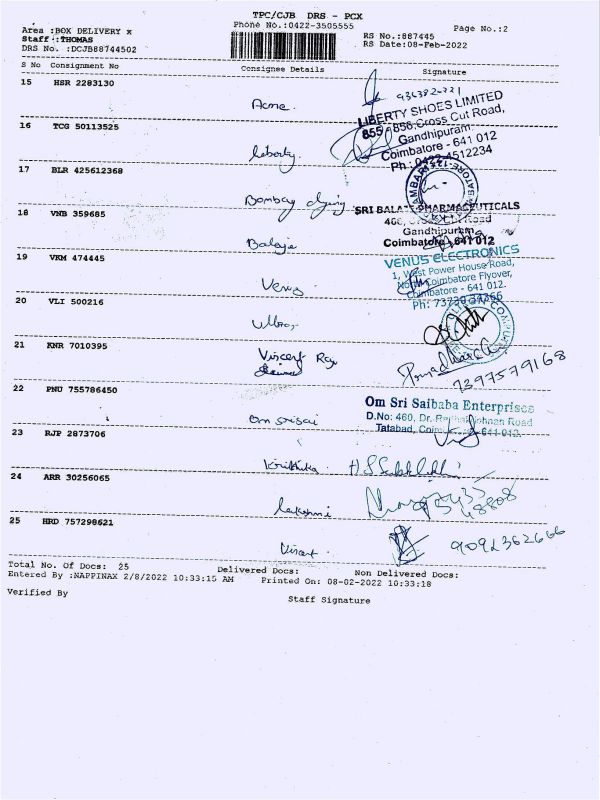 TPC/CJB DRS - PCX
Area :BOX DELIVERY x
Phone No.:0422-3505555
Page No.:2
Staff :THOMAS
RS No.:887445
DRS No. :DCJB88744502
RS Date:08-Feb-2022
S No Consignment No Consignee Details Signature
15 HSR 2283130
Acme
16 TCG 50113525
Liberty
LIBERTY SHOES LIMITED
855 - 856, Cross Cut Road,
Gandhipuram
Coimbatore - 641 012
Ph : 0422-4512234
17 BLR 425612368
Bombay dying
18 VNB 359685
Balaje
SRI BALAJI PHARMACEUTICALS
Gandhipuram
Coimbatore - 641 012
19 VKM 474445
Venus
VENUS ELECTRONICS
1, West Power House Road,
North Coimbatore Flyover,
Coimbatore - 641 012.
20 VLI 500216
21 KNR 7010395
Vincent Raj
7397579168
22 PNU 755786450
Om srisai
Om Sri Saibaba Enterprises
D.No: 460, Dr. Radhakrishnan Road
Tatabad, 641 012.
23 RJP 2873706
Krithika
24 ARR 30256065
Lakshmi
25 HRD 757298621
Vincent
9092362666
Total No. Of Docs: 25 Delivered Docs: Non Delivered Docs:
Entered By :NAPPINAX 2/8/2022 10:33:15 AM Printed On: 08-02-2022 10:33:18
Verified By
Staff Signature